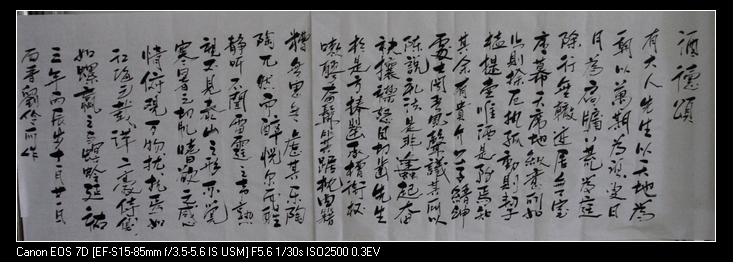 酒德頌
有大人先生以天地為
朝以萬期為須臾日
月為扃牖八荒為庭
除行無轍迹居無室
廬幕天席地縱意所如
止則操卮執觚動則挈
榼提壺唯酒是務焉知
其余有貴介公子縉紳
處士聞吾風聲議其所以
陳說禮法是非蠭起奮
袂攘襟怒目切齒先生
於是方捧罌承槽銜杯
漱醪奮髯箕踞枕麴籍
糟無思無慮其樂陶
陶兀然而醉恍尔而醒
靜听不聞雷霆之聲熟
視不見泰山之形不覺
寒暑之切肌嗜欲之感
情俯視萬物扰扰焉如
江海之載萍二豪侍側
如螺蠃之與螟蛉
三年十月廿日
劉伶所作
Canon EOS 7D [EF-S15-85mm f/3.5-5.6 IS USM] F5.6 1/30s ISO2500 0.3EV